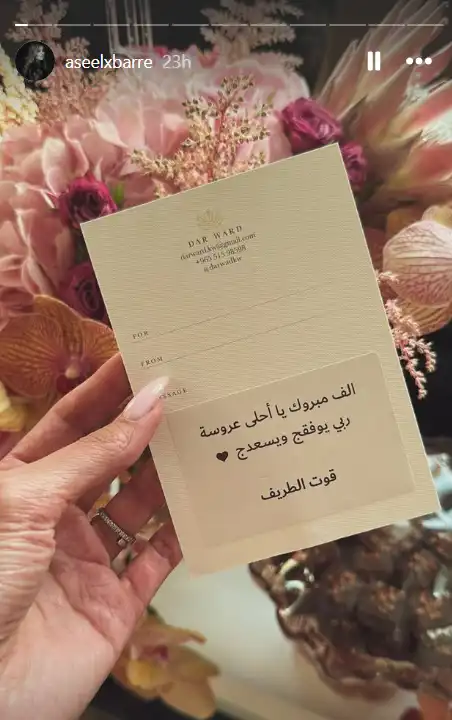 aseelxbarre 23h
DAR WARD
darward.kw@gmail.com
+965 51598598
@darwardkw
FOR
FROM
ESSAGE
الف مبروك يا أحلى عروسة
ربي يوفقج ويسعدج ♥
قوت الطريف